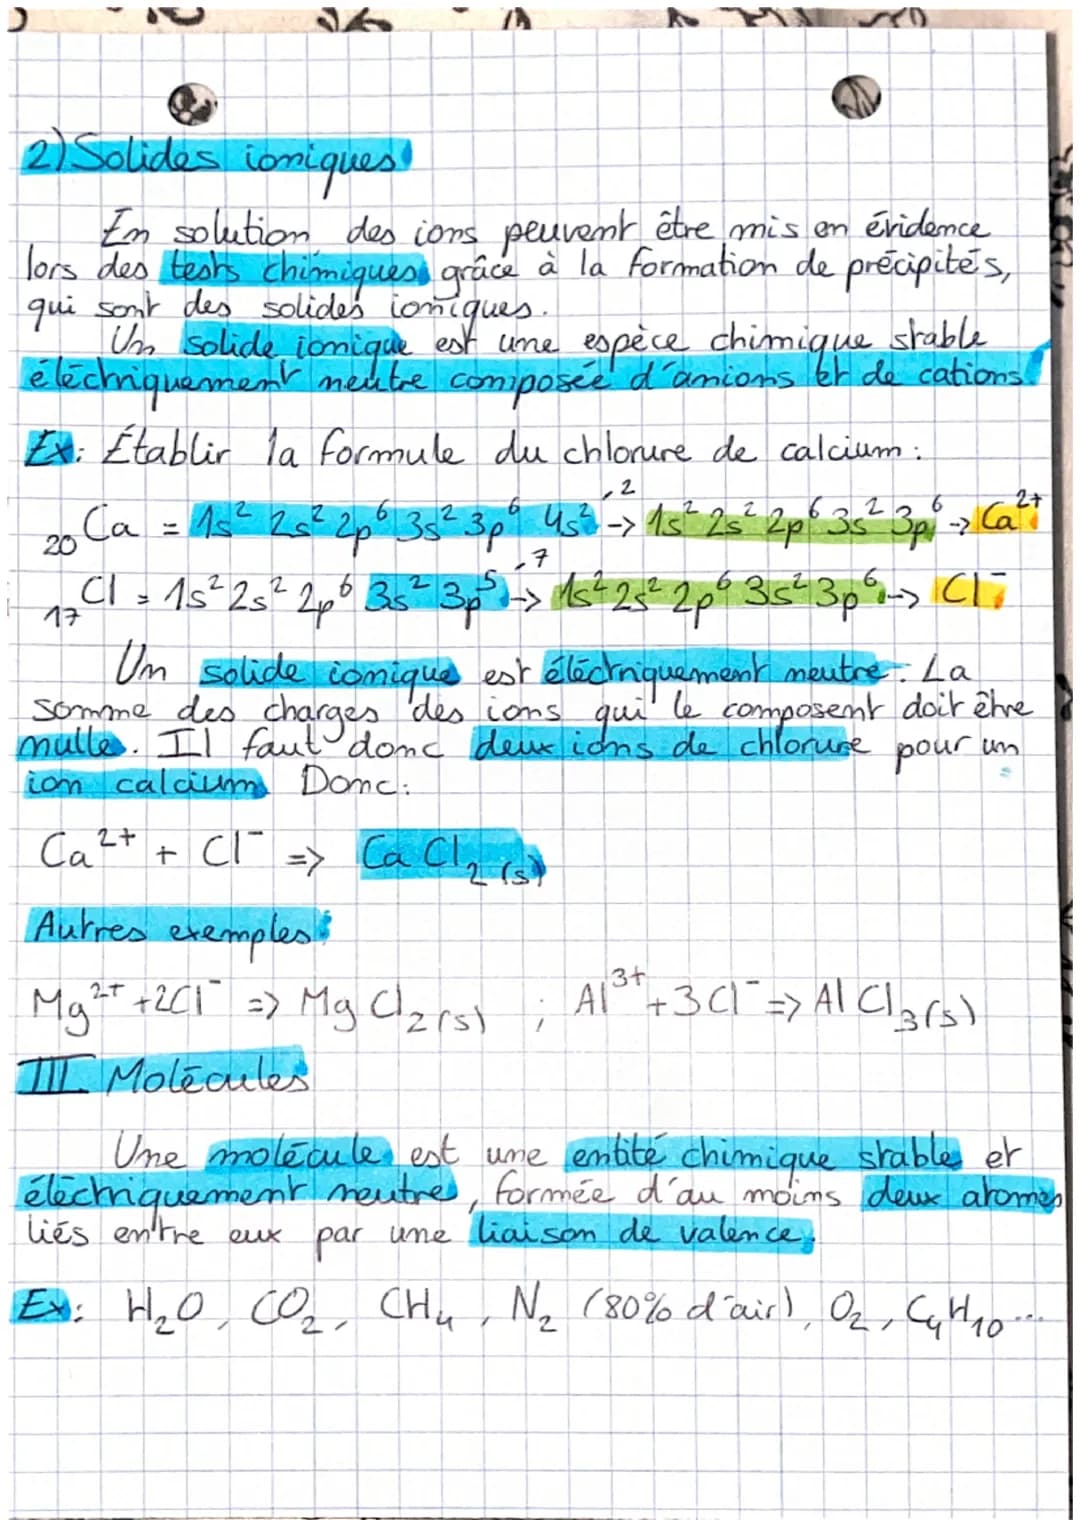 2) Solides ioniques
En solution des ions peuvent être mis en évidence
lors des tests chimiques grâce à la formation de précipités,
qui sont des solides ioniques.
Un solide ionique est une espèce chimique stable
éléctriquement neutre composée d'anions et de cations.
Ex: Établir la formule du chlorure de calcium :
₂₀Ca = 1s² 2s² 2p⁶ 3s² 3p⁶ 4s² -² -> 1s² 2s² 2p⁶ 3s² 3p⁶ -> Ca²⁺
₁₇Cl = 1s² 2s² 2p⁶ 3s² 3p⁵ -⁷ -> 1s² 2s² 2p⁶ 3s² 3p⁶ -> Cl⁻
Un solide ionique est éléctriquement neutre. La
somme des charges des ions qui le composent doit être
nulle. Il faut donc deux ions de chlorure pour un
ion calcium Donc:
Ca²⁺ + Cl⁻ => CaCl₂ (s)
Autres exemples:
Mg²⁺ + 2Cl⁻ => MgCl₂(s) ; Al³⁺ + 3Cl⁻ => AlCl₃(s)
III. Molécules
Une molécule est une entité chimique stable et
éléctriquement neutre, formée d'au moins deux atomes
liés entre eux par une liaison de valence.
Ex: H₂O, CO₂, CH₄, N₂ (80% d'air), O₂, C₄H₁₀...